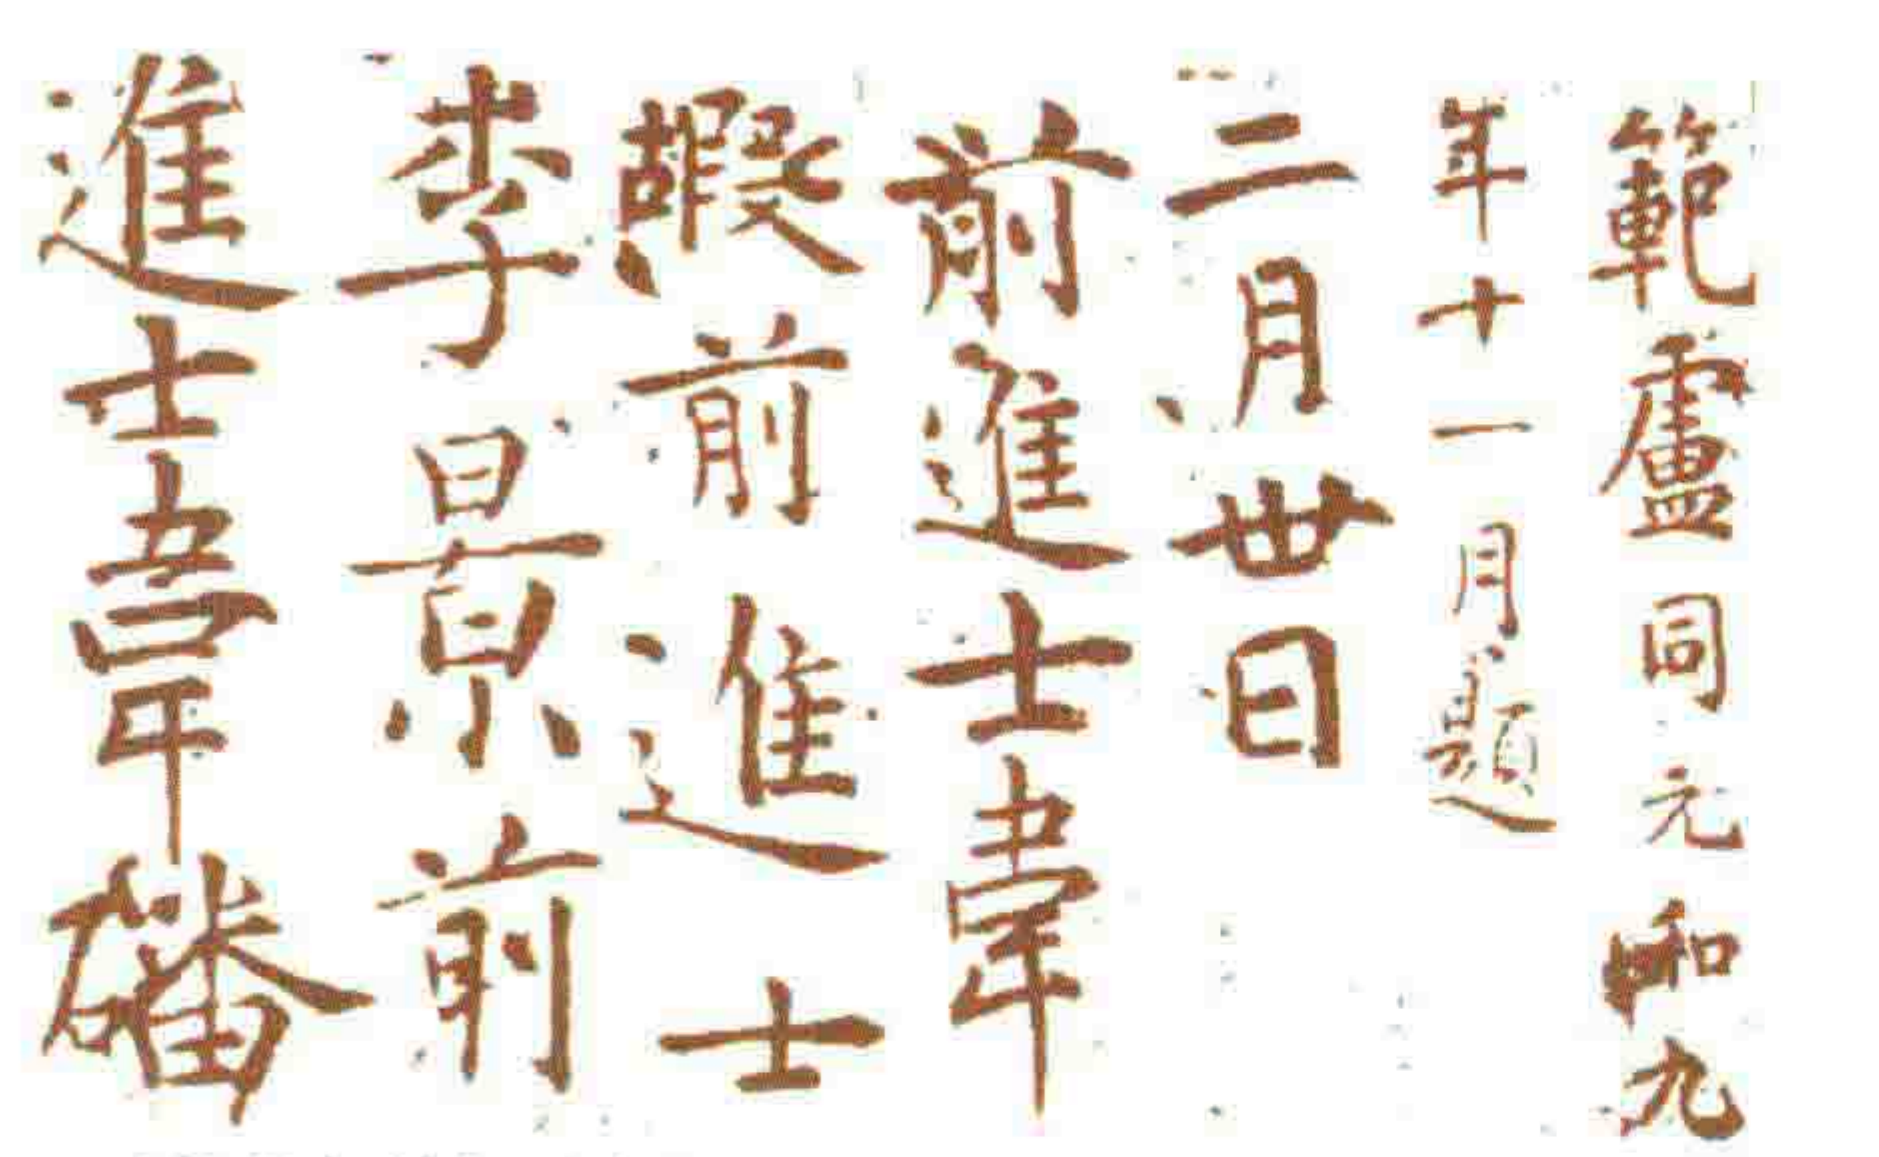 範盧同元和九
年十一月題
二月丗日
前進士韋
嘏前進士
李景前
進士韋磻